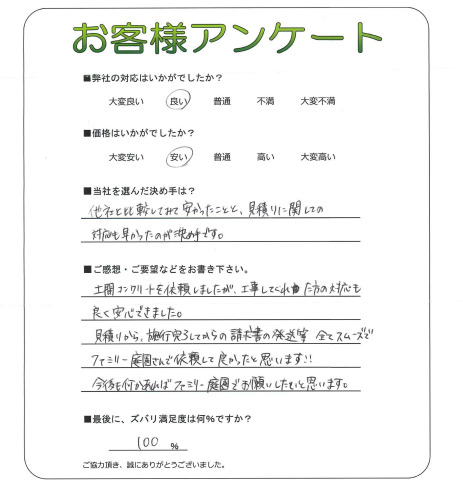 お客様アンケート
■弊社の対応はいかがでしたか？
大変良い 良い 普通 不満 大変不満
■価格はいかがでしたか？
大変安い 安い 普通 高い 大変高い
■当社を選んだ決め手は？
他社と比較してみて安かったことと、見積りに関しての
対応も早かったのが決め手です。
■ご感想・ご要望などをお書き下さい。
土間コンクリートを依頼しましたが、工事してくれた方の対応も
良く安心できました。
見積りから、施行完了してからの請求書の発送等 全てスムーズで
ファミリー庭園さんで依頼して良かったと思います!!
今後も何かあればファミリー庭園でお願いしたいと思います。
■最後に、ズバリ満足度は何％ですか？
100 %
ご協力頂き、誠にありがとうございました。